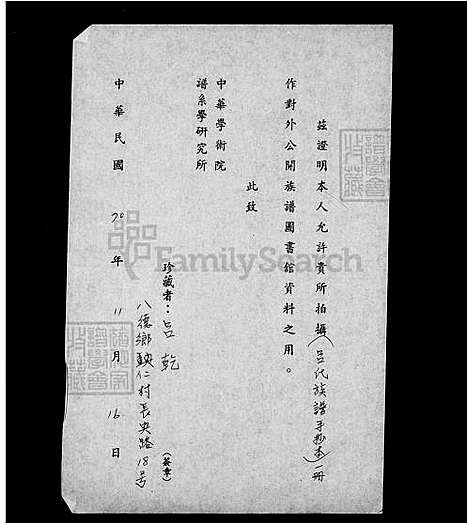 茲證明本人允許貴所拍攝(呂氏族譜手抄本)一冊
作對外公開族譜圖書館資料之用。
此致
中華學術院
譜系學研究所
珍藏者：呂乾(簽章)
八德鄉 仁村長興路18号
中華民國70年11月16日
FamilySearch
譜系學會收藏